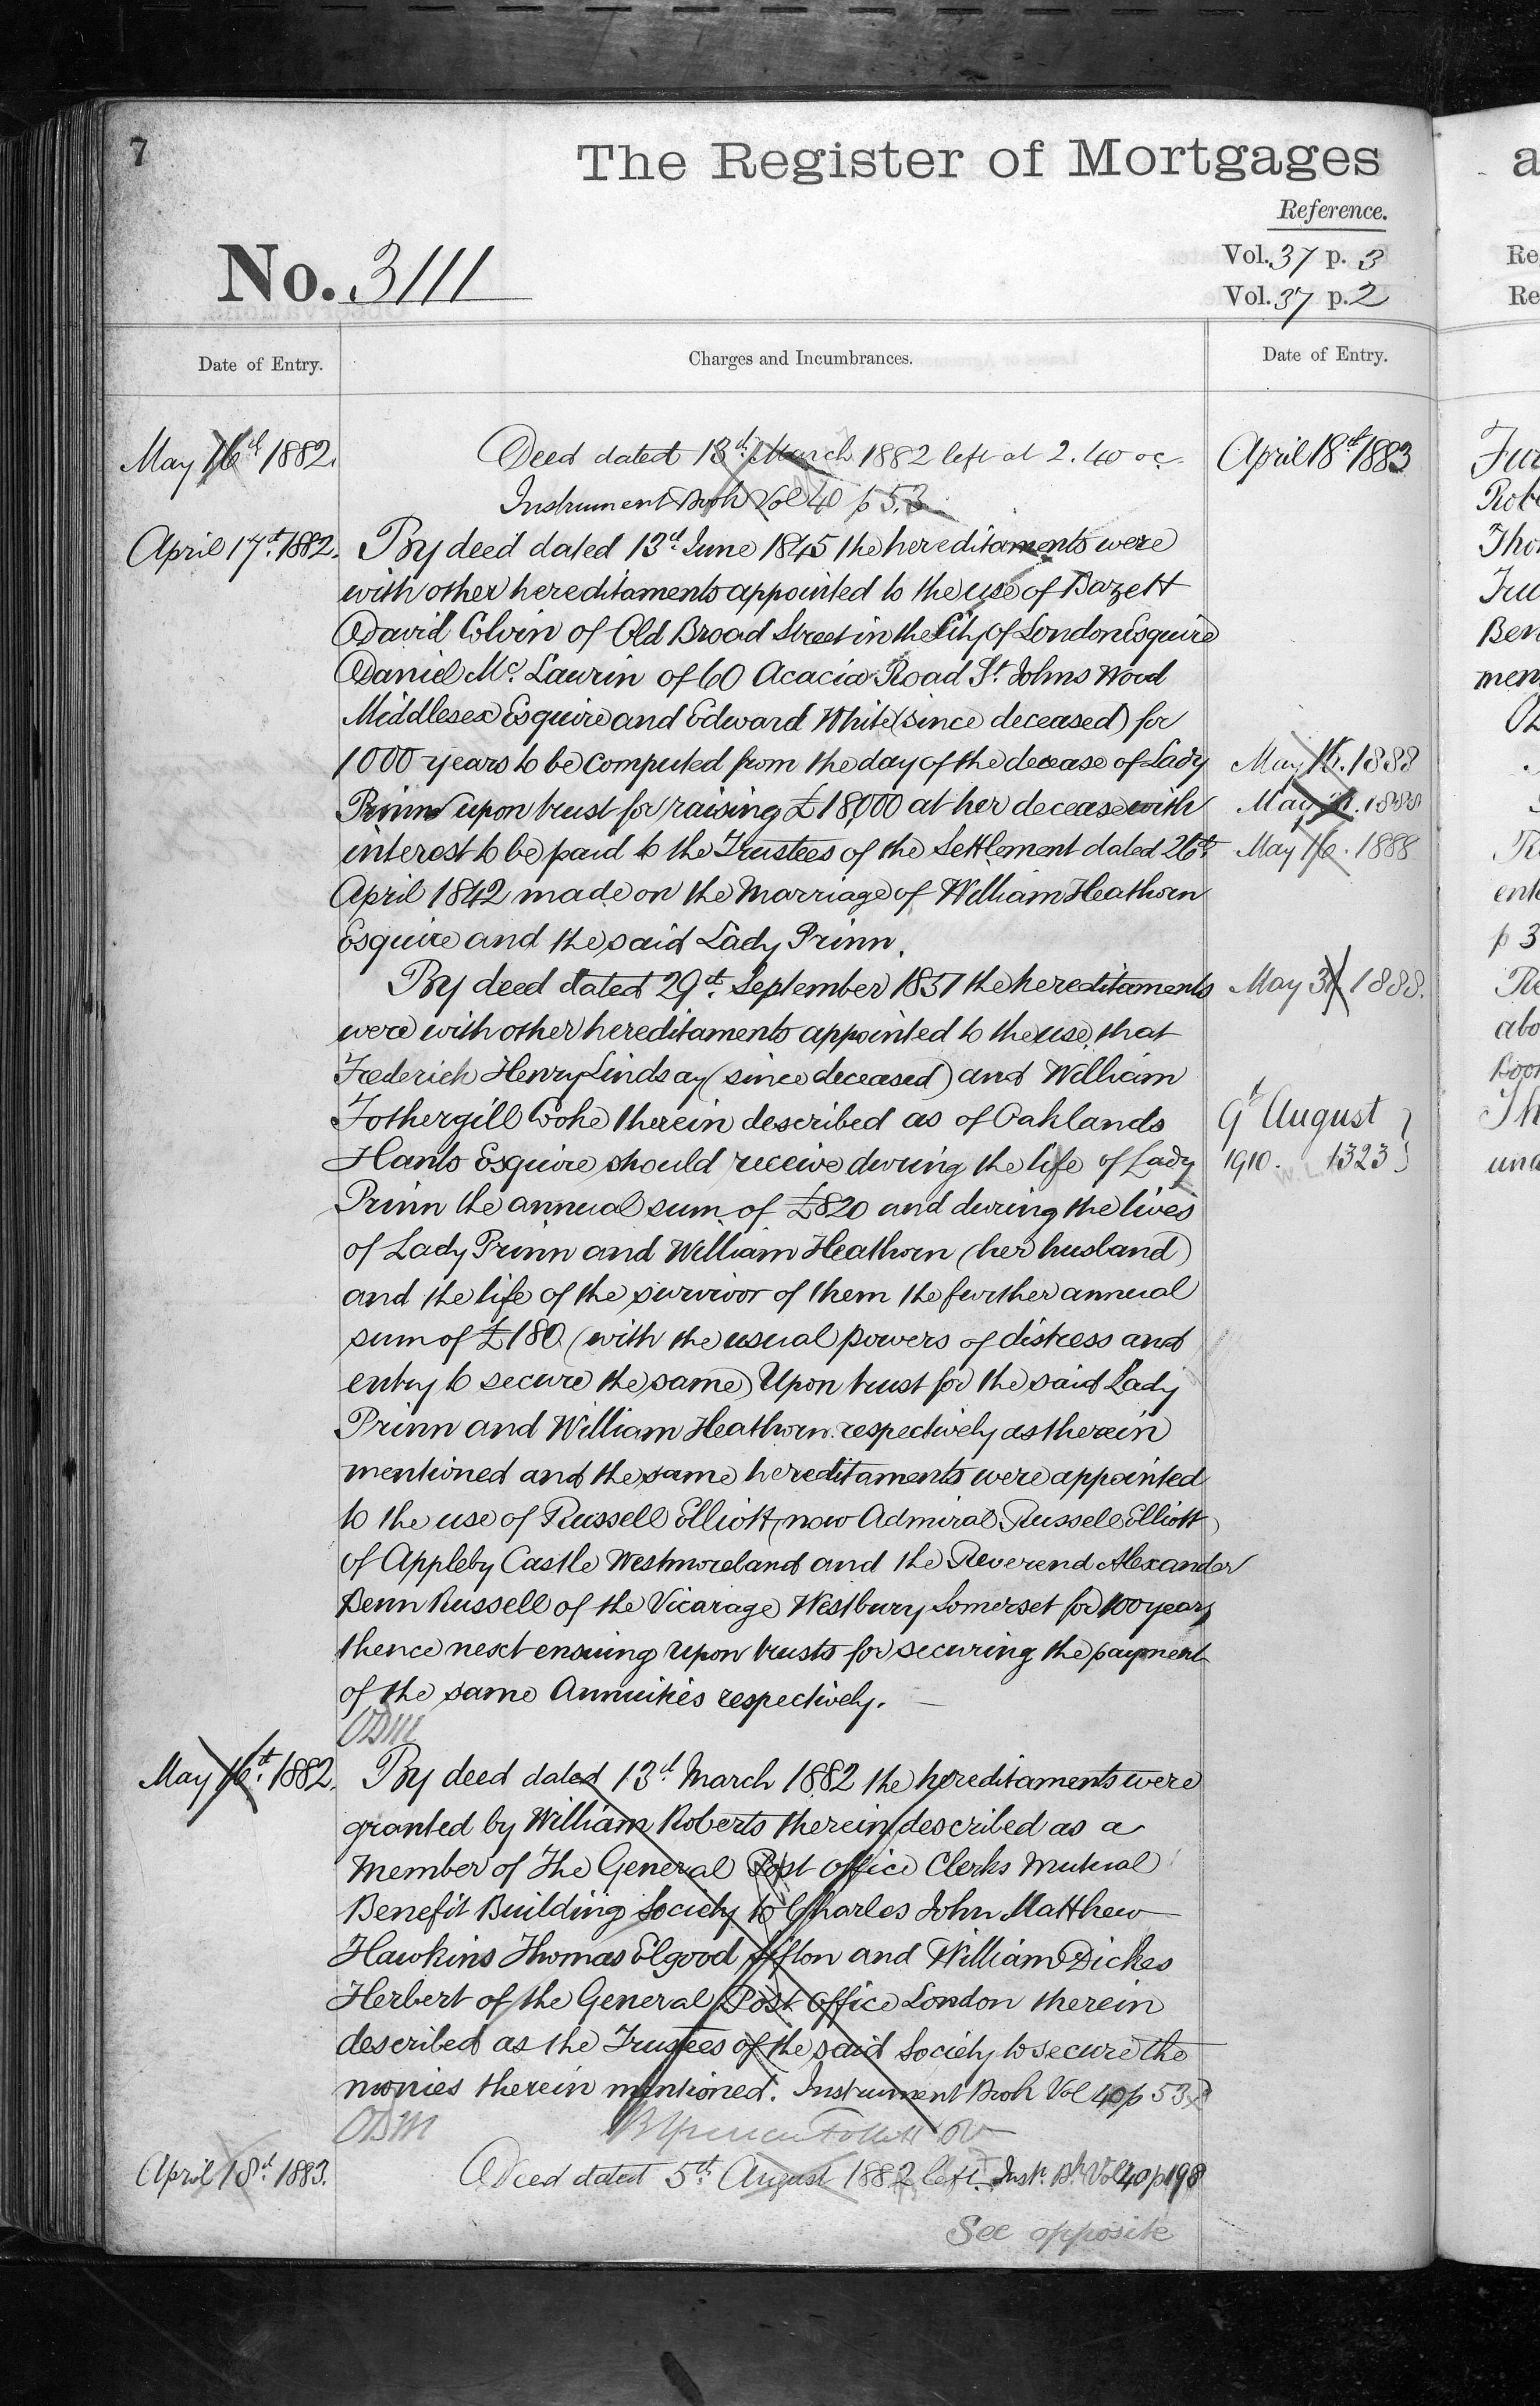 7
The Register of Mortgages
Reference.
No. 3111
Vol. 37 p. 3
Vol. 37 p. 2
Date of Entry.
Charges and Incumbrances.
Date of Entry.
May 16th 1882.
Deed dated 13th March 1882 left at 2.40 oc.
Instrument Book Vol 40 p 53
April 17th 1882.
By deed dated 13th June 1845 the hereditaments were
with other hereditaments appointed to the use of Bazett
David Colvin of Old Broad Street in the City of London Esquire
Daniel Mc. Laurin of 60 Acacia Road St. Johns Wood
Middlesex Esquire and Edward White (since deceased) for
1000 years to be computed from the day of the decease of Lady
Prinn upon trust for raising £18,000 at her decease with
interest to be paid to the Trustees of the Settlement dated 26th
April 1842 made on the Marriage of William Heathorn
Esquire and the said Lady Prinn.
By deed dated 29th. September 1857 the hereditaments
were with other hereditaments appointed to the use, that
Frederick Henry Lindsay (since deceased) and William
Fothergill Cooke therein described as of Oaklands
Hants Esquire should receive during the life of Lady
Prinn the annual sum of £820 and during the lives
of Lady Prinn and William Heathorn (her husband)
and the life of the survivor of them the further annual
sum of £180 (with the usual powers of distress and
entry to secure the same) Upon trust for the said Lady
Prinn and William Heathorn respectively as therein
mentioned and the same hereditaments were appointed
to the use of Russell Elliott, now Admiral Russell Elliott
of Appleby Castle Westmoreland and the Reverend Alexander
Benn Russell of the Vicarage Westbury Somerset for 100 years
thence next ensuing upon trusts for securing the payment
of the same Annuities respectively.
May 16th. 1882.
By deed dated 13th March 1882 the hereditaments were
granted by William Roberts therein described as a
Member of The General Post Office Clerks Mutual
Benefit Building Society to Charles John Matthew
Hawkins Thomas Elgood and William Dickes
Herbert of the General Post Office London therein
described as the Trustees of the said Society to secure the
monies therein mentioned. Instrument Book Vol 40 p 53
April 18th 1883.
Deed dated 5th August 1882 left. Inst. Bk Vol 40 p 198
See opposite
April 18th 1883
May 16. 1888
May 1888
May 16. 1888
May 31 1888.
9th August
1910. 1323
a
Re
Re
Rob
Tho
Ben
men
ent
p 3
abo
Boo
Th
una